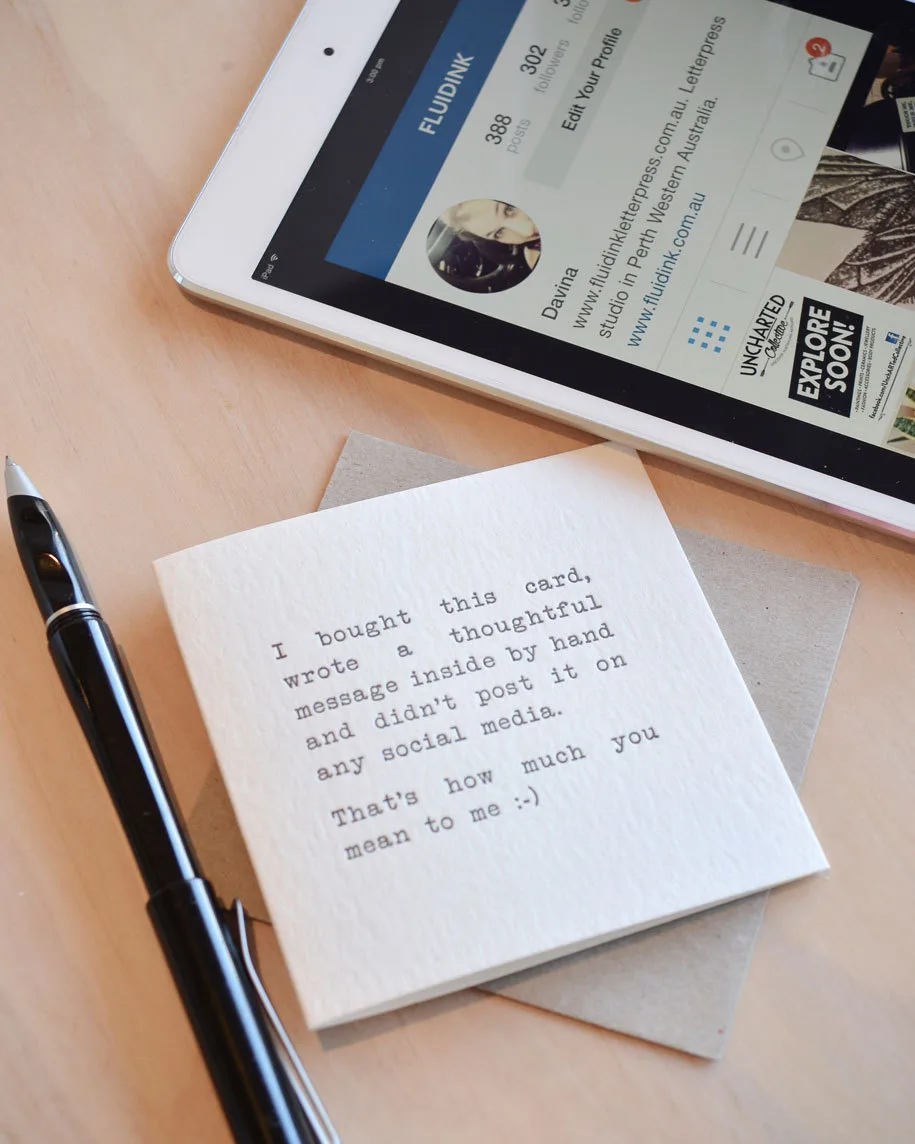 3:00 pm
iPad
FLUIDINK
388
posts
302
followers
3
follo
Edit Your Profile
Davina
www.fluidinkletterpress.com.au. Letterpress
studio in Perth Western Australia.
www.fluidink.com.au
2
UNCHARTED
Collective
EXPLORE
SOON!
facebook.com/UnchARTedCollective
I bought this card,
wrote a thoughtful
message inside by hand
and didn't post it on
any social media.
That's how much you
mean to me :-)